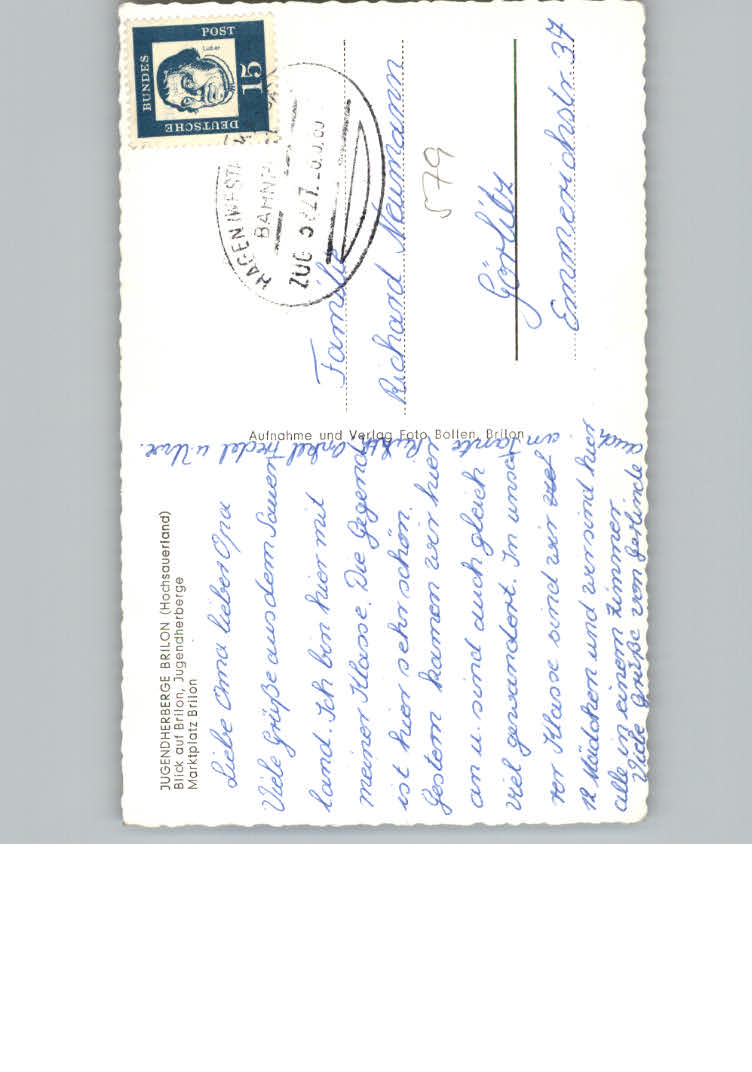 JUGENDHERBERGE BRILON (Hochsauerland)
Blick auf Brilon, Jugendherberge
Marktplatz Brilon
Liebe Oma lieber Opa
Viele Grüße aus dem Sauer
land. Ich bin hier mit
meiner Klasse. Die Gegend
ist hier sehr schön.
Gestern kamen wir hier
an u. sind auch gleich
viel gewandert. In unse
rer Klasse sind wir
12 Mädchen und wir sind hier
alle in einem Zimmer
Viele Grüße von Gerlinde
auch an Tante Ruth, Onkel Friedel u. Uwe.
Aufnahme und Verlag Foto Bolten, Brilon
DEUTSCHE BUNDES POST
Luther
15
HAGEN (WESTF
BAHNP
ZUG
Familie
Richard Neumann
579
Görlitz
Emmerichstr. 37